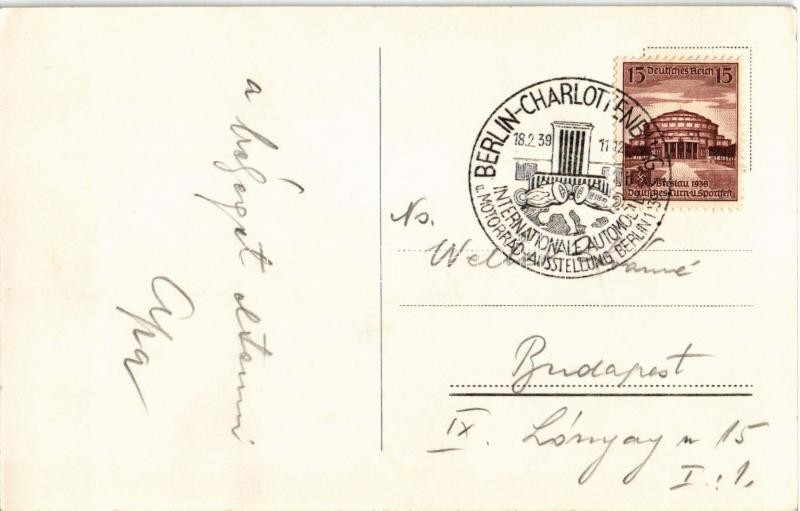 a
Apa
15 Deutsches Reich 15
Breslau 1938
Deutsches Turn-u. Sportfest
BERLIN-CHARLOTTENBURG
18.2.39 11-12
INTERNATIONALE AUTOMOBIL
u. MOTORRAD-AUSSTELLUNG BERLIN 1939
Ns.
Budapest
IX. Lónyay u 15
I. 1.